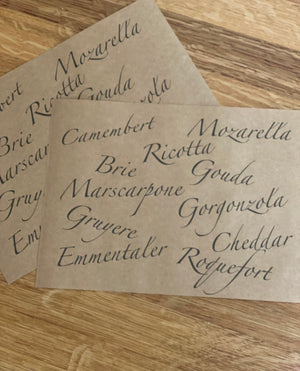 Mozarella
Camembert
Ricotta
Gouda
Brie
Marscarpone
Gruyere
Emmentaler
Camembert Mozarella
Ricotta
Brie Gouda
Marscarpone
Gorgonzola
Gruyere
Cheddar
Emmentaler Roquefort